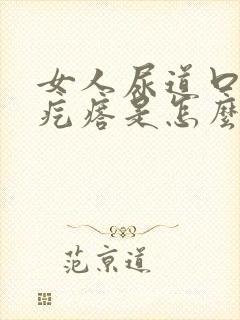 女人尿道口
疙瘩是怎麼
范京道